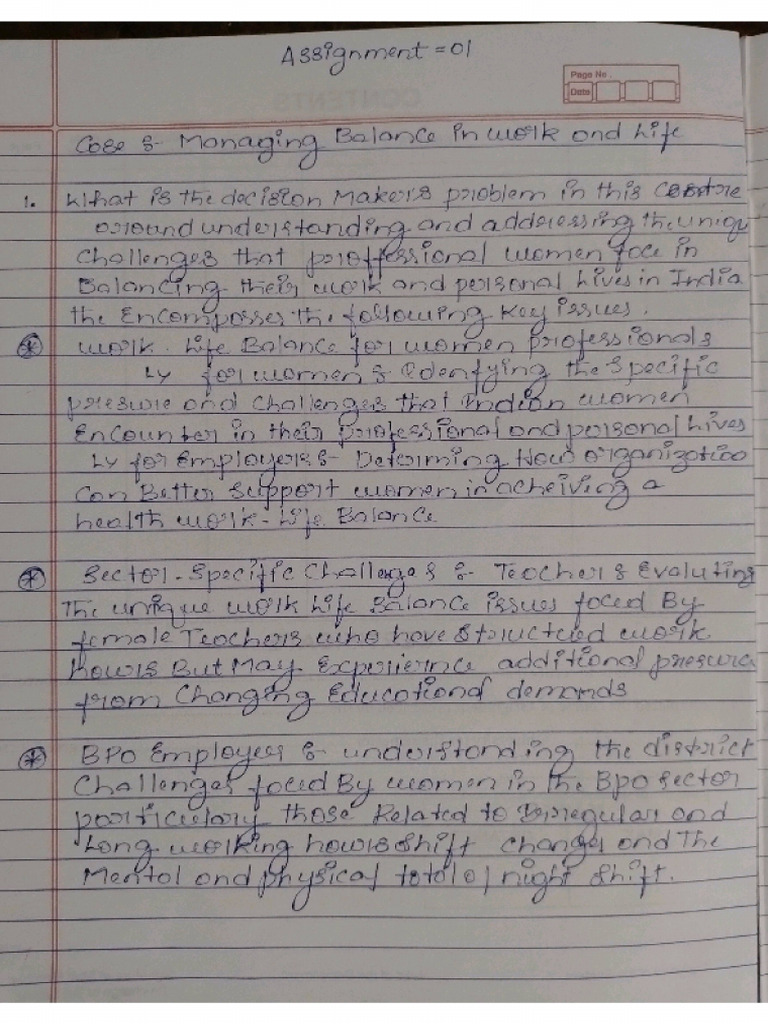 Assignment = 01
Page No.
Date
Case :- Managing Balance in work and Life
1. What is the decision Maker's problem in this
around understanding and addressing the uniqu
Challenges that proffessional women face in
Balancing their work and personal Lives in India
the Encomposses the following key issues.
work. Life Balance for women professionals
↳ for women : Idenfying the specific
presure and challenges that Indian women
Encounter in their professional and personal Lives
↳ for Employers :- Determing How organizatio
Can Better support women in acheiving a
health work-Life Balance
Sector-Specific Challenges :- Teachers Evaluting
The unique work Life Balance issues faced By
female Teachers who have structued work
hours But May Experience additional presure
from Changing Educational demands
BPO Employees :- understanding the district
Challenges faced By women in the Bpo sector
particulary those Related to Irregular and
Long working hours shift changes and The
Mental and physical night shift.